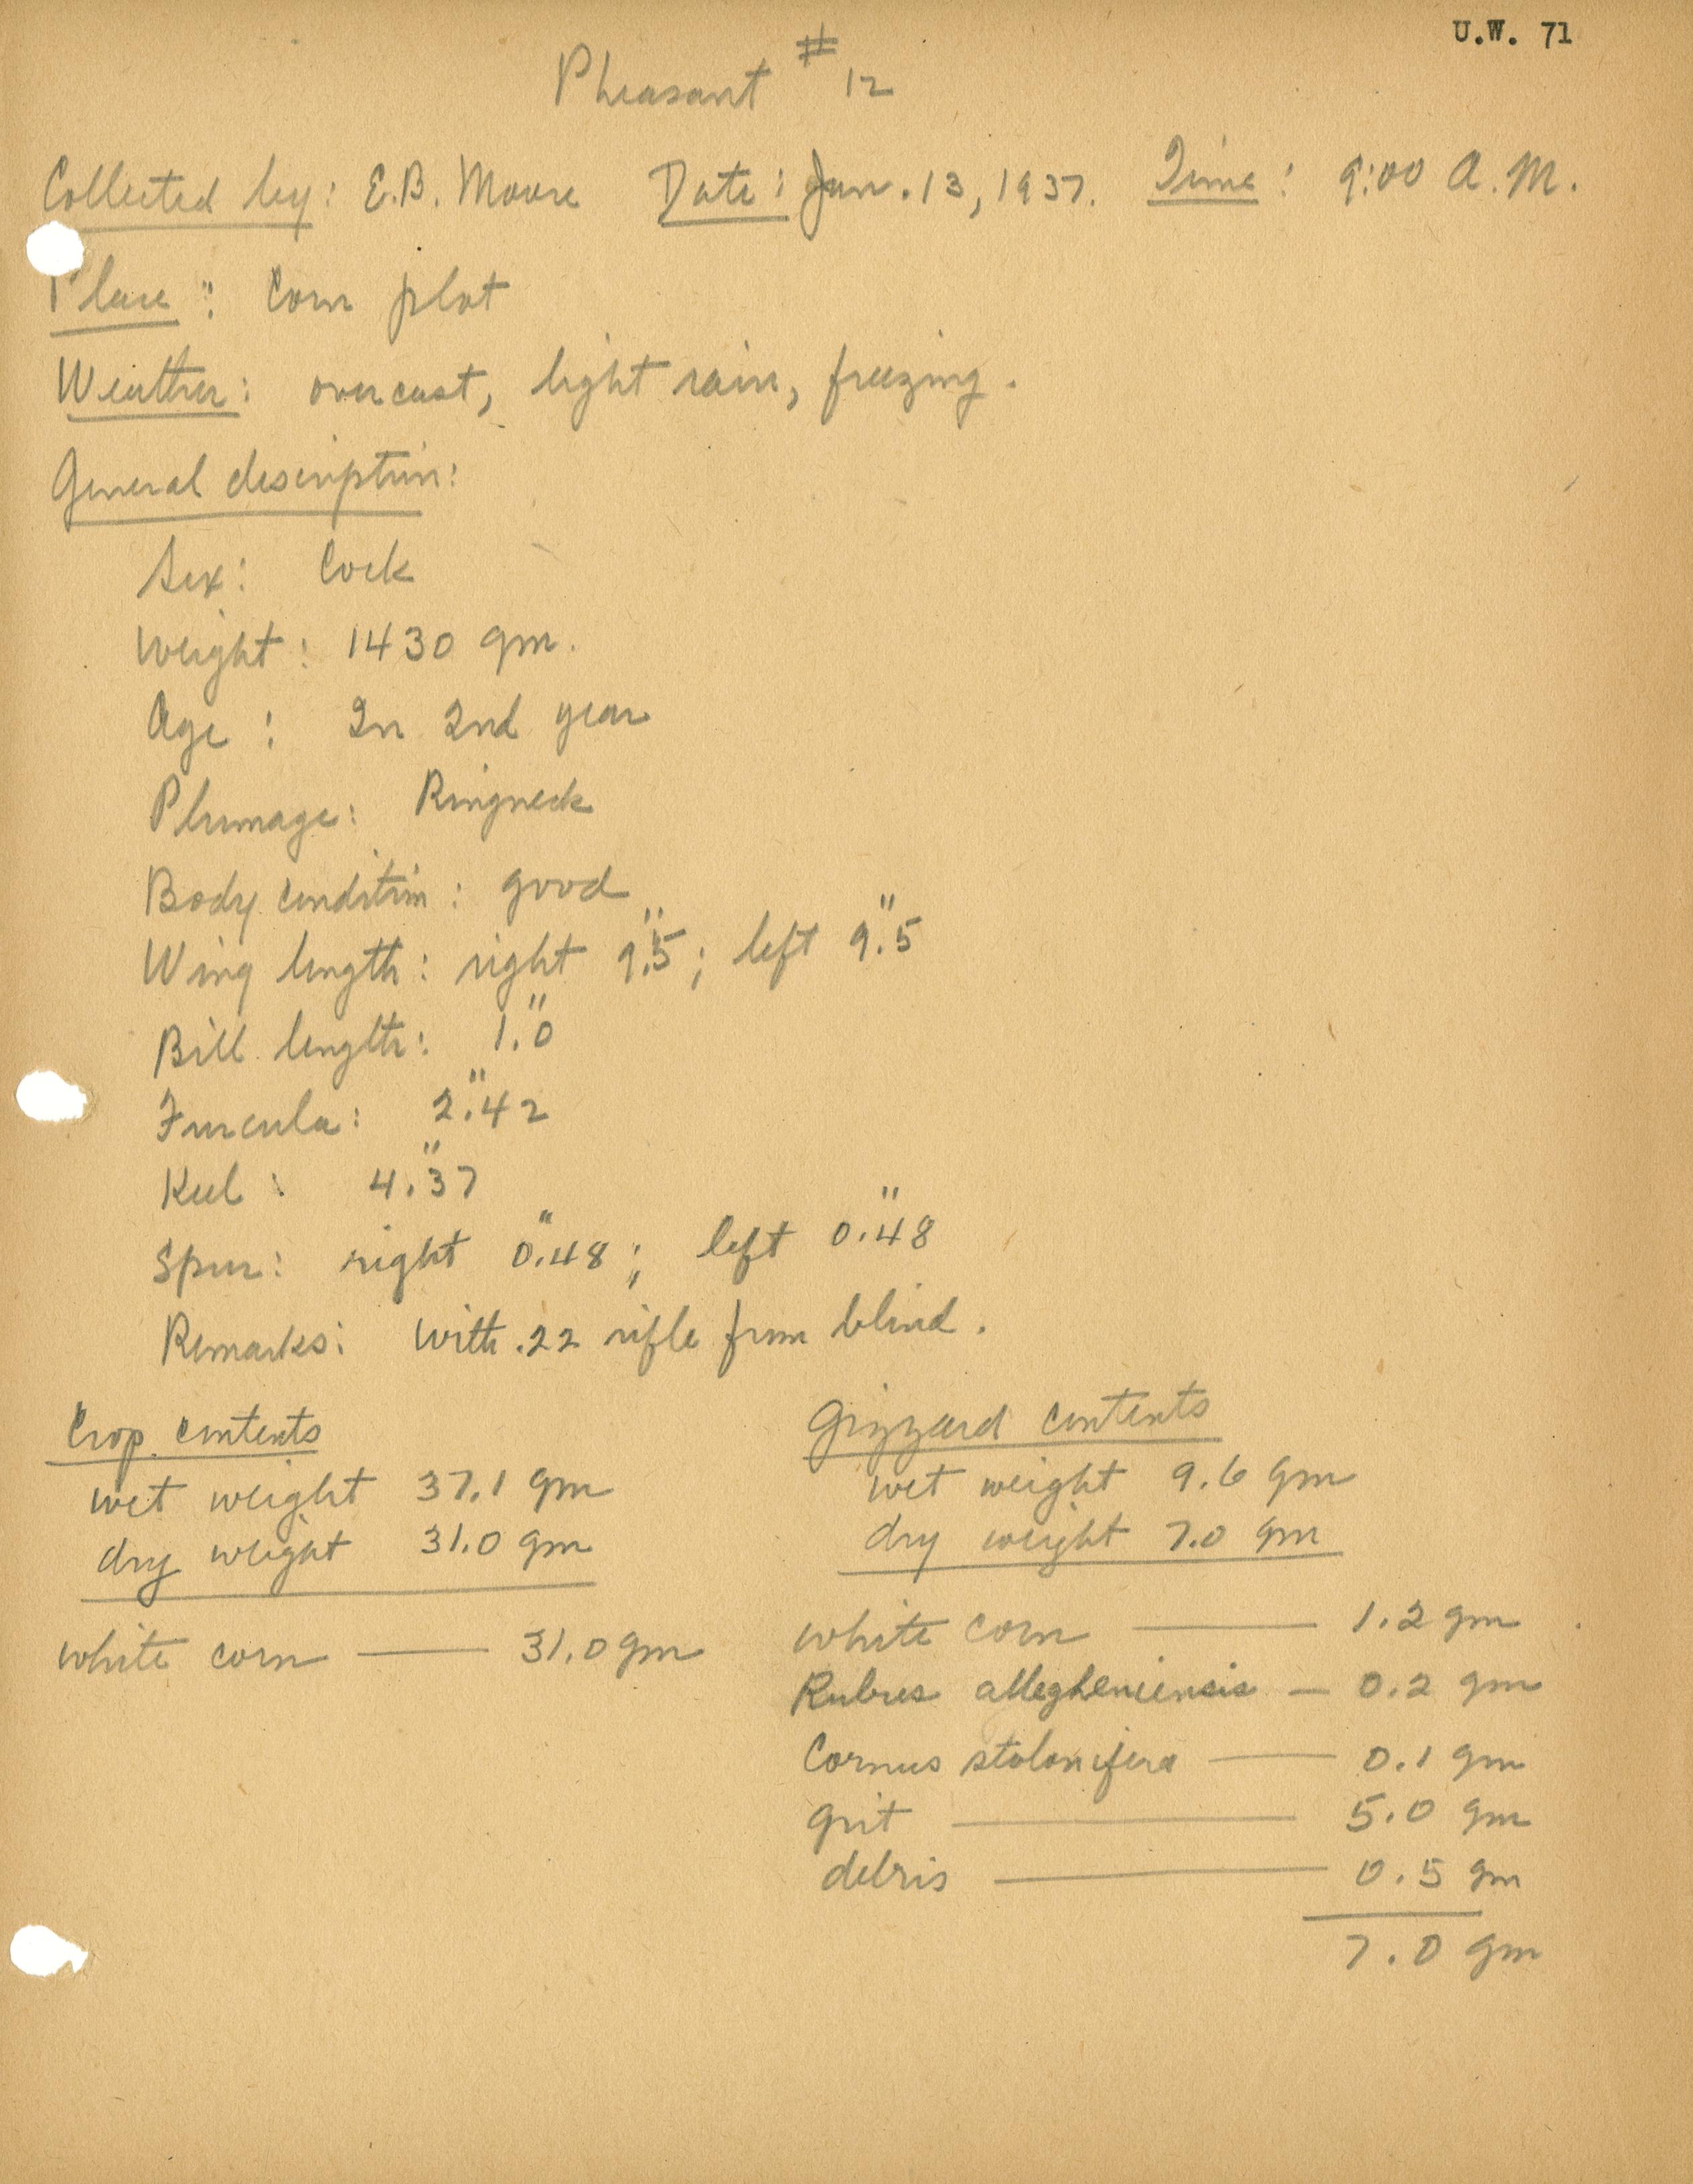 U.W. 71
Pheasant # 12
Collected by: E.B. Moore Date: Jan. 13, 1937. Time: 9:00 A.M.
Place: Corn plot
Weather: overcast, light rain, freezing.
General description:
Sex: Cock
Weight: 1430 gm.
Age: In 2nd year
Plumage: Ringneck
Body condition: good
Wing length: right 9."5; left 9."5
Bill length: 1."0
Furcula: 2."42
Keel: 4."37
Spur: right 0."48; left 0."48
Remarks: With .22 rifle from blind.
Crop contents
wet weight 37.1 gm
dry weight 31.0 gm
white corn — 31.0 gm
Gizzard contents
wet weight 9.6 gm
dry weight 7.0 gm
white corn — 1.2 gm
Rubus allegheniensis — 0.2 gm
Cornus stolonifera — 0.1 gm
grit — 5.0 gm
debris — 0.5 gm
7.0 gm